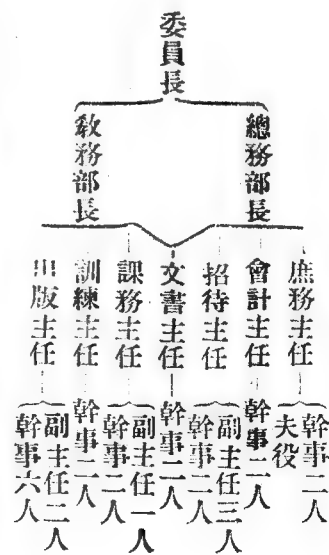 委員長
總務部長
敎務部長
庶務主任
幹事二人
夫役
會計主任
幹事二人
招待主任
副主任三人
幹事二人
文書主任
幹事二人
課務主任
副主任一人
幹事二人
訓練主任
幹事二人
出版主任
副主任二人
幹事六人